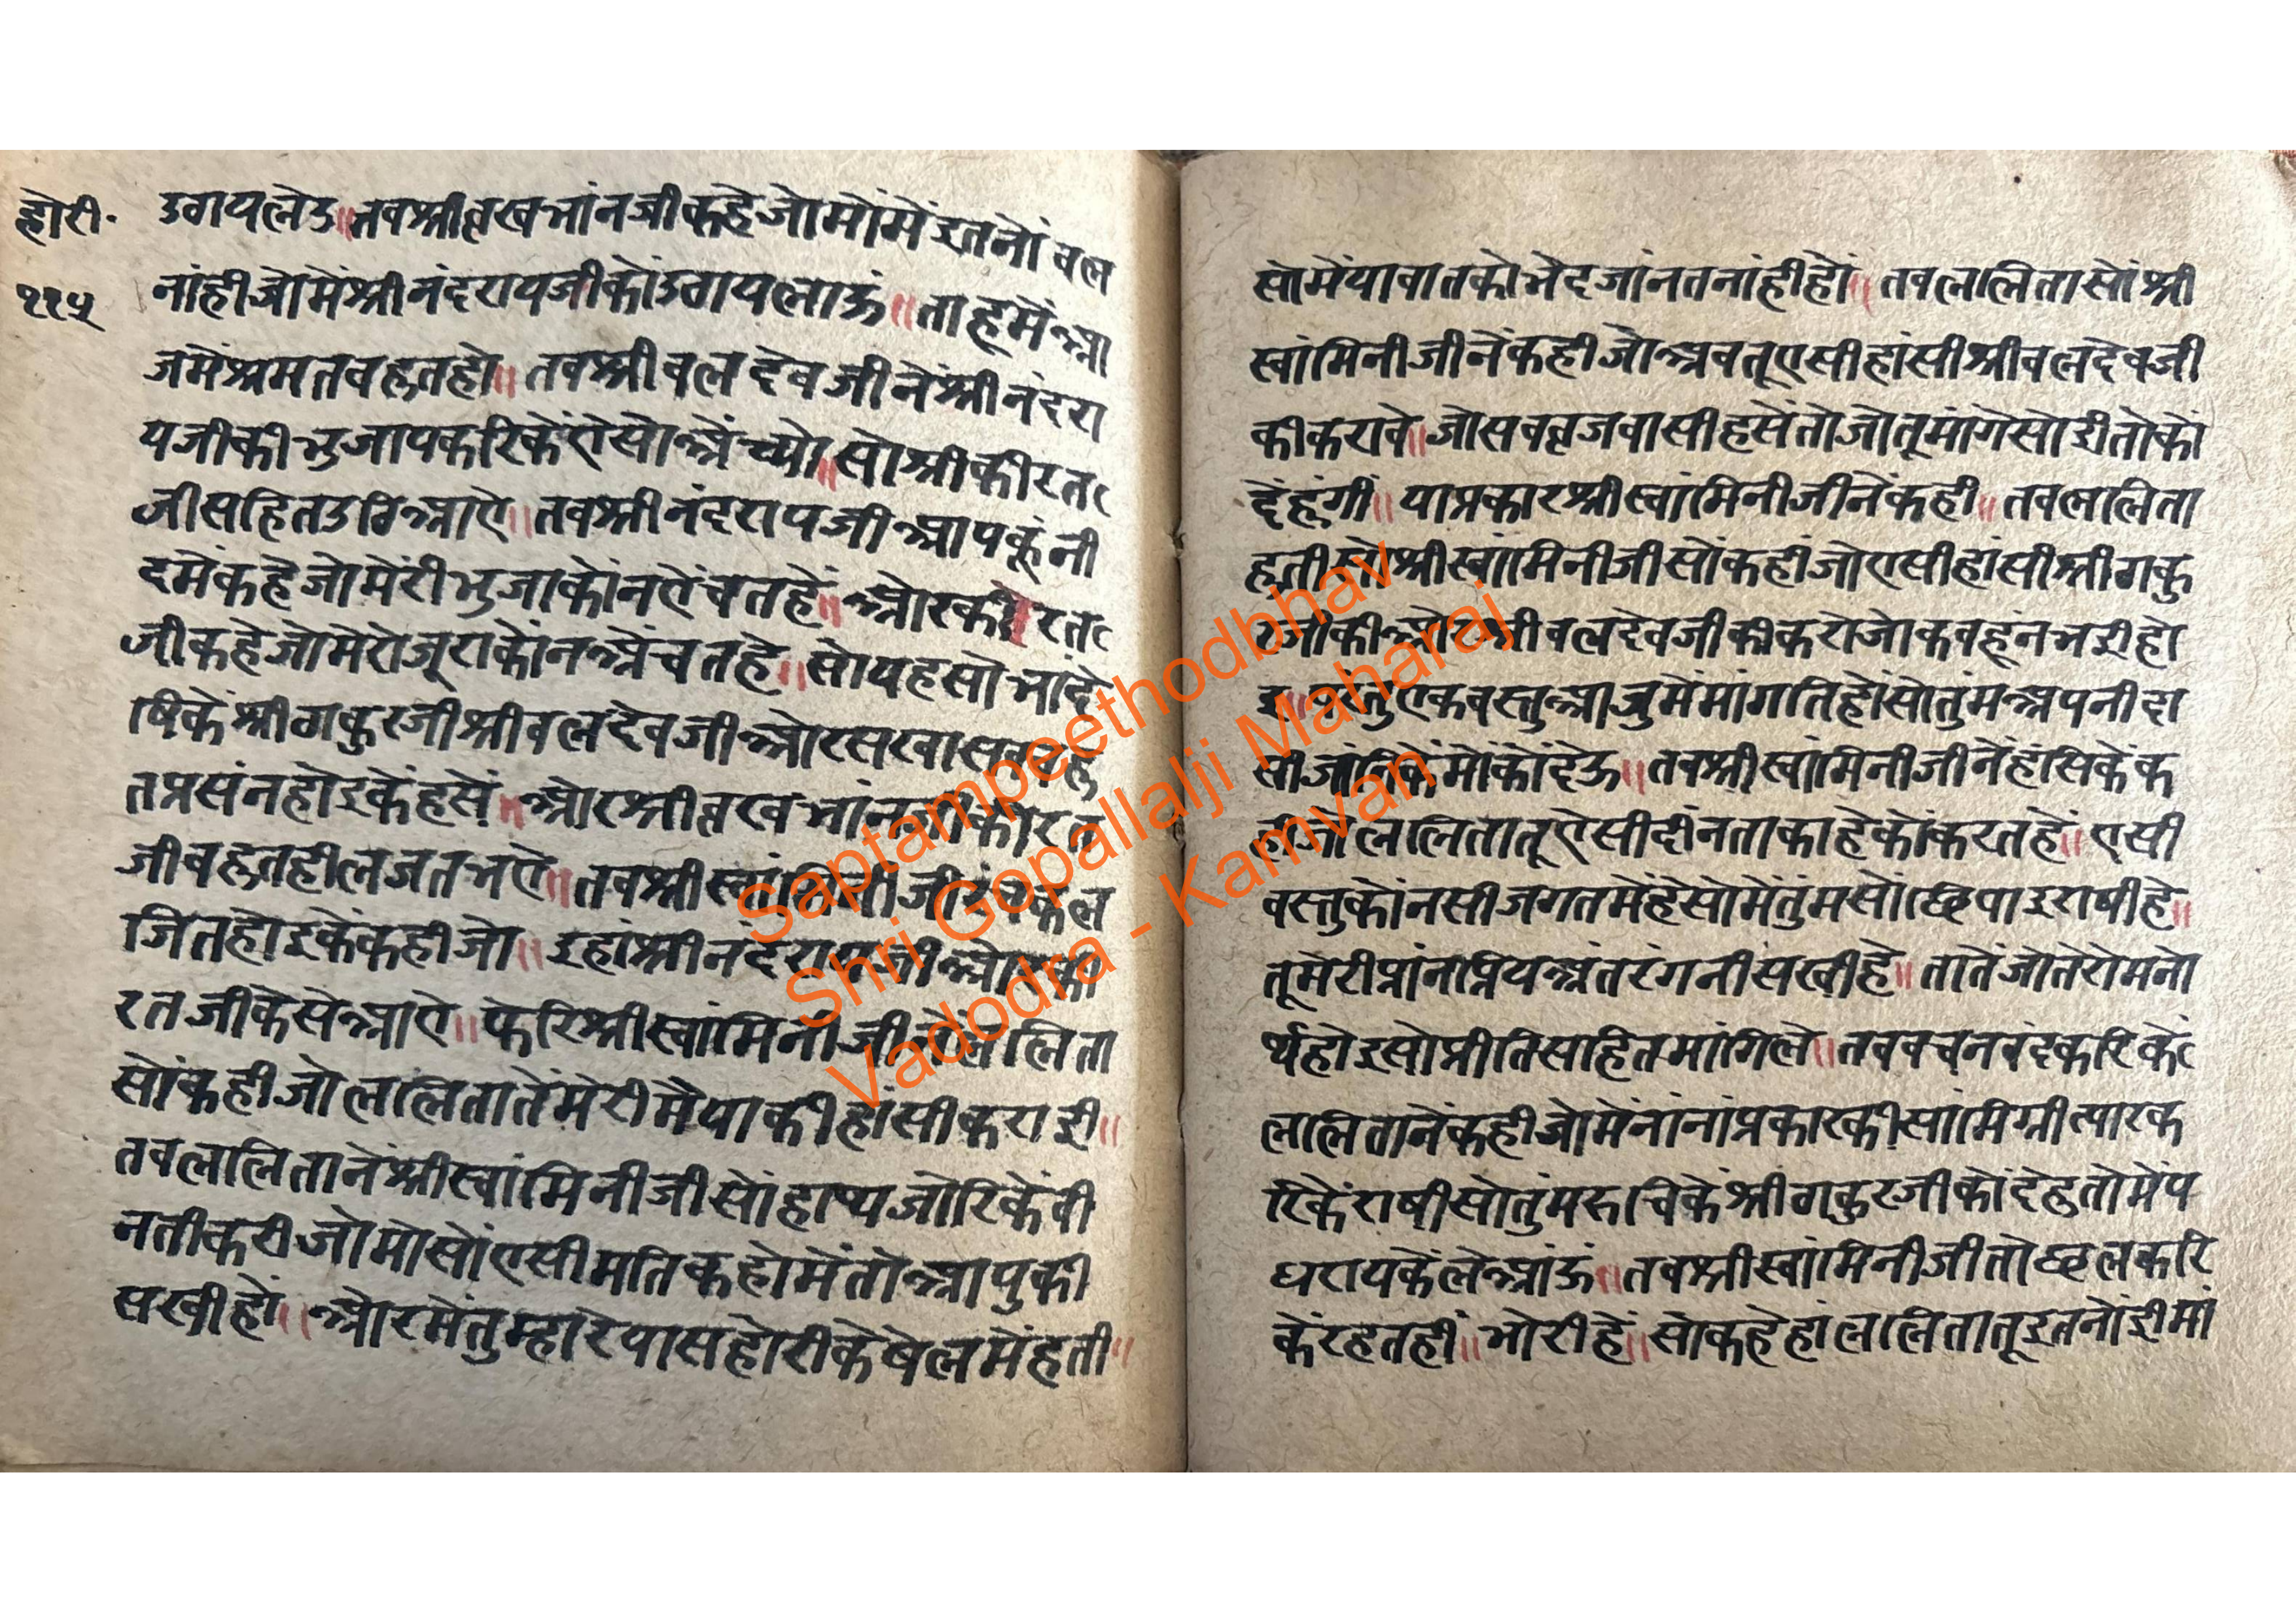 होरी॰
११५
उठायलेउ॥तबश्रीवृखभांनजीकहेजोमोमेंइतनोंबल
नांहीजोमेंश्रीनंदरायजीकोंउठायलाऊं॥ताहूमेंआ
जमेंश्रमतबहुतहो॥तबश्रीबलदेवजीनेंश्रीनंदरा
यजीकीभुजापकरिकेंऐसोअेंच्यो॥सोश्रीकीरत
जीसहितउठिआऐ॥तबश्रीनंदरायजीआपकूंनी
दमेंकहेजोमेरीभुजाकोंनऐंचतहें॥ओरकीरत
जीकहेजोमेरोजूराकोंनअेंचतहे॥सोयहसोभादे
षिकेंश्रीठाकुरजीश्रीबलदेवजीओरसखासबबहु
तप्रसंनहोइकेंहसें॥ओरश्रीवृखभांनजीकीरत
जीबहुतहीलजतभऐ॥तबश्रीस्वांमिनीजी
जितहोइकेंकहीजो॥इहांश्रीनंदरायजीओरकी
रतजीकेसेआऐ॥फेरिश्रीस्वांमिनीजीनेंललिता
सोंकहीजोललितातेंमेरीमैयाकीहांसीकराई॥
तबललितानेंश्रीस्वांमिनीजीसोंहाथजोरिकेंबी
नतीकरीजोमोसोंएसीमतिकहोमेंतोआपुकी
सखीहों॥ओरमेंतुम्हारेपासहोरीकेषेलमेंहती॥
सोमेंयाबातकोभेदजांनतनांहीहों॥तबललितासोंश्री
स्वांमिनीजीनेंकहीजोअबतूएसीहांसीश्रीबलदेवजी
कीकरावे॥जोसबवृजबासीहसेंतोजोतूमांगेसोईतोकों
देंहूंगीं॥याप्रकारश्रीस्वांमिनीजीनेंकही॥तबललिता
हतीसोश्रीस्वांमिनीजीसोंकहींजोएसीहांसीश्रीठाकु
रजीकीओरश्रीबलदेवजीकीकरोजोकबहूंनभईहो
इ॥परंतुऐकबस्तुआजुमेंमांगतिहोंसोतुंमअपनीदा
सीजांनिकेंमोंकोंदेऊ॥तबश्रीस्वांमिनीजीनेंहांसिकेंक
हीजोललितातूऐसीदीनताकाहेकोंकरतहें॥एसी
बस्तुकोंनसीजगतमेंहेंसोमेंतुंमसोंछिपाइराषीहे॥
तूमेरीप्रांनप्रियअंतरंगनीसखीहे॥तातेंजोतेरोमनो
र्थहोइसोप्रीतिसहितमांगिले॥तबबचनबंदकरिकें
ललितानेंकहीजोमेंनांनांप्रकारकीसांमिग्रीत्यारक
रिकेंराषीसोतुंमरुचिकेंश्रीठाकुरजीकोंदेहुतोमेंप
धरायकेंलेआंऊ॥तबश्रीस्वांमिनीजीतोछलकरि
केंरहतहीं॥भोरीहें॥सोकहेहांललितातूइतनोंईमां
Saptampeethodbhav
Shri Gopallalji Maharaj
Vadodra - Kamvan